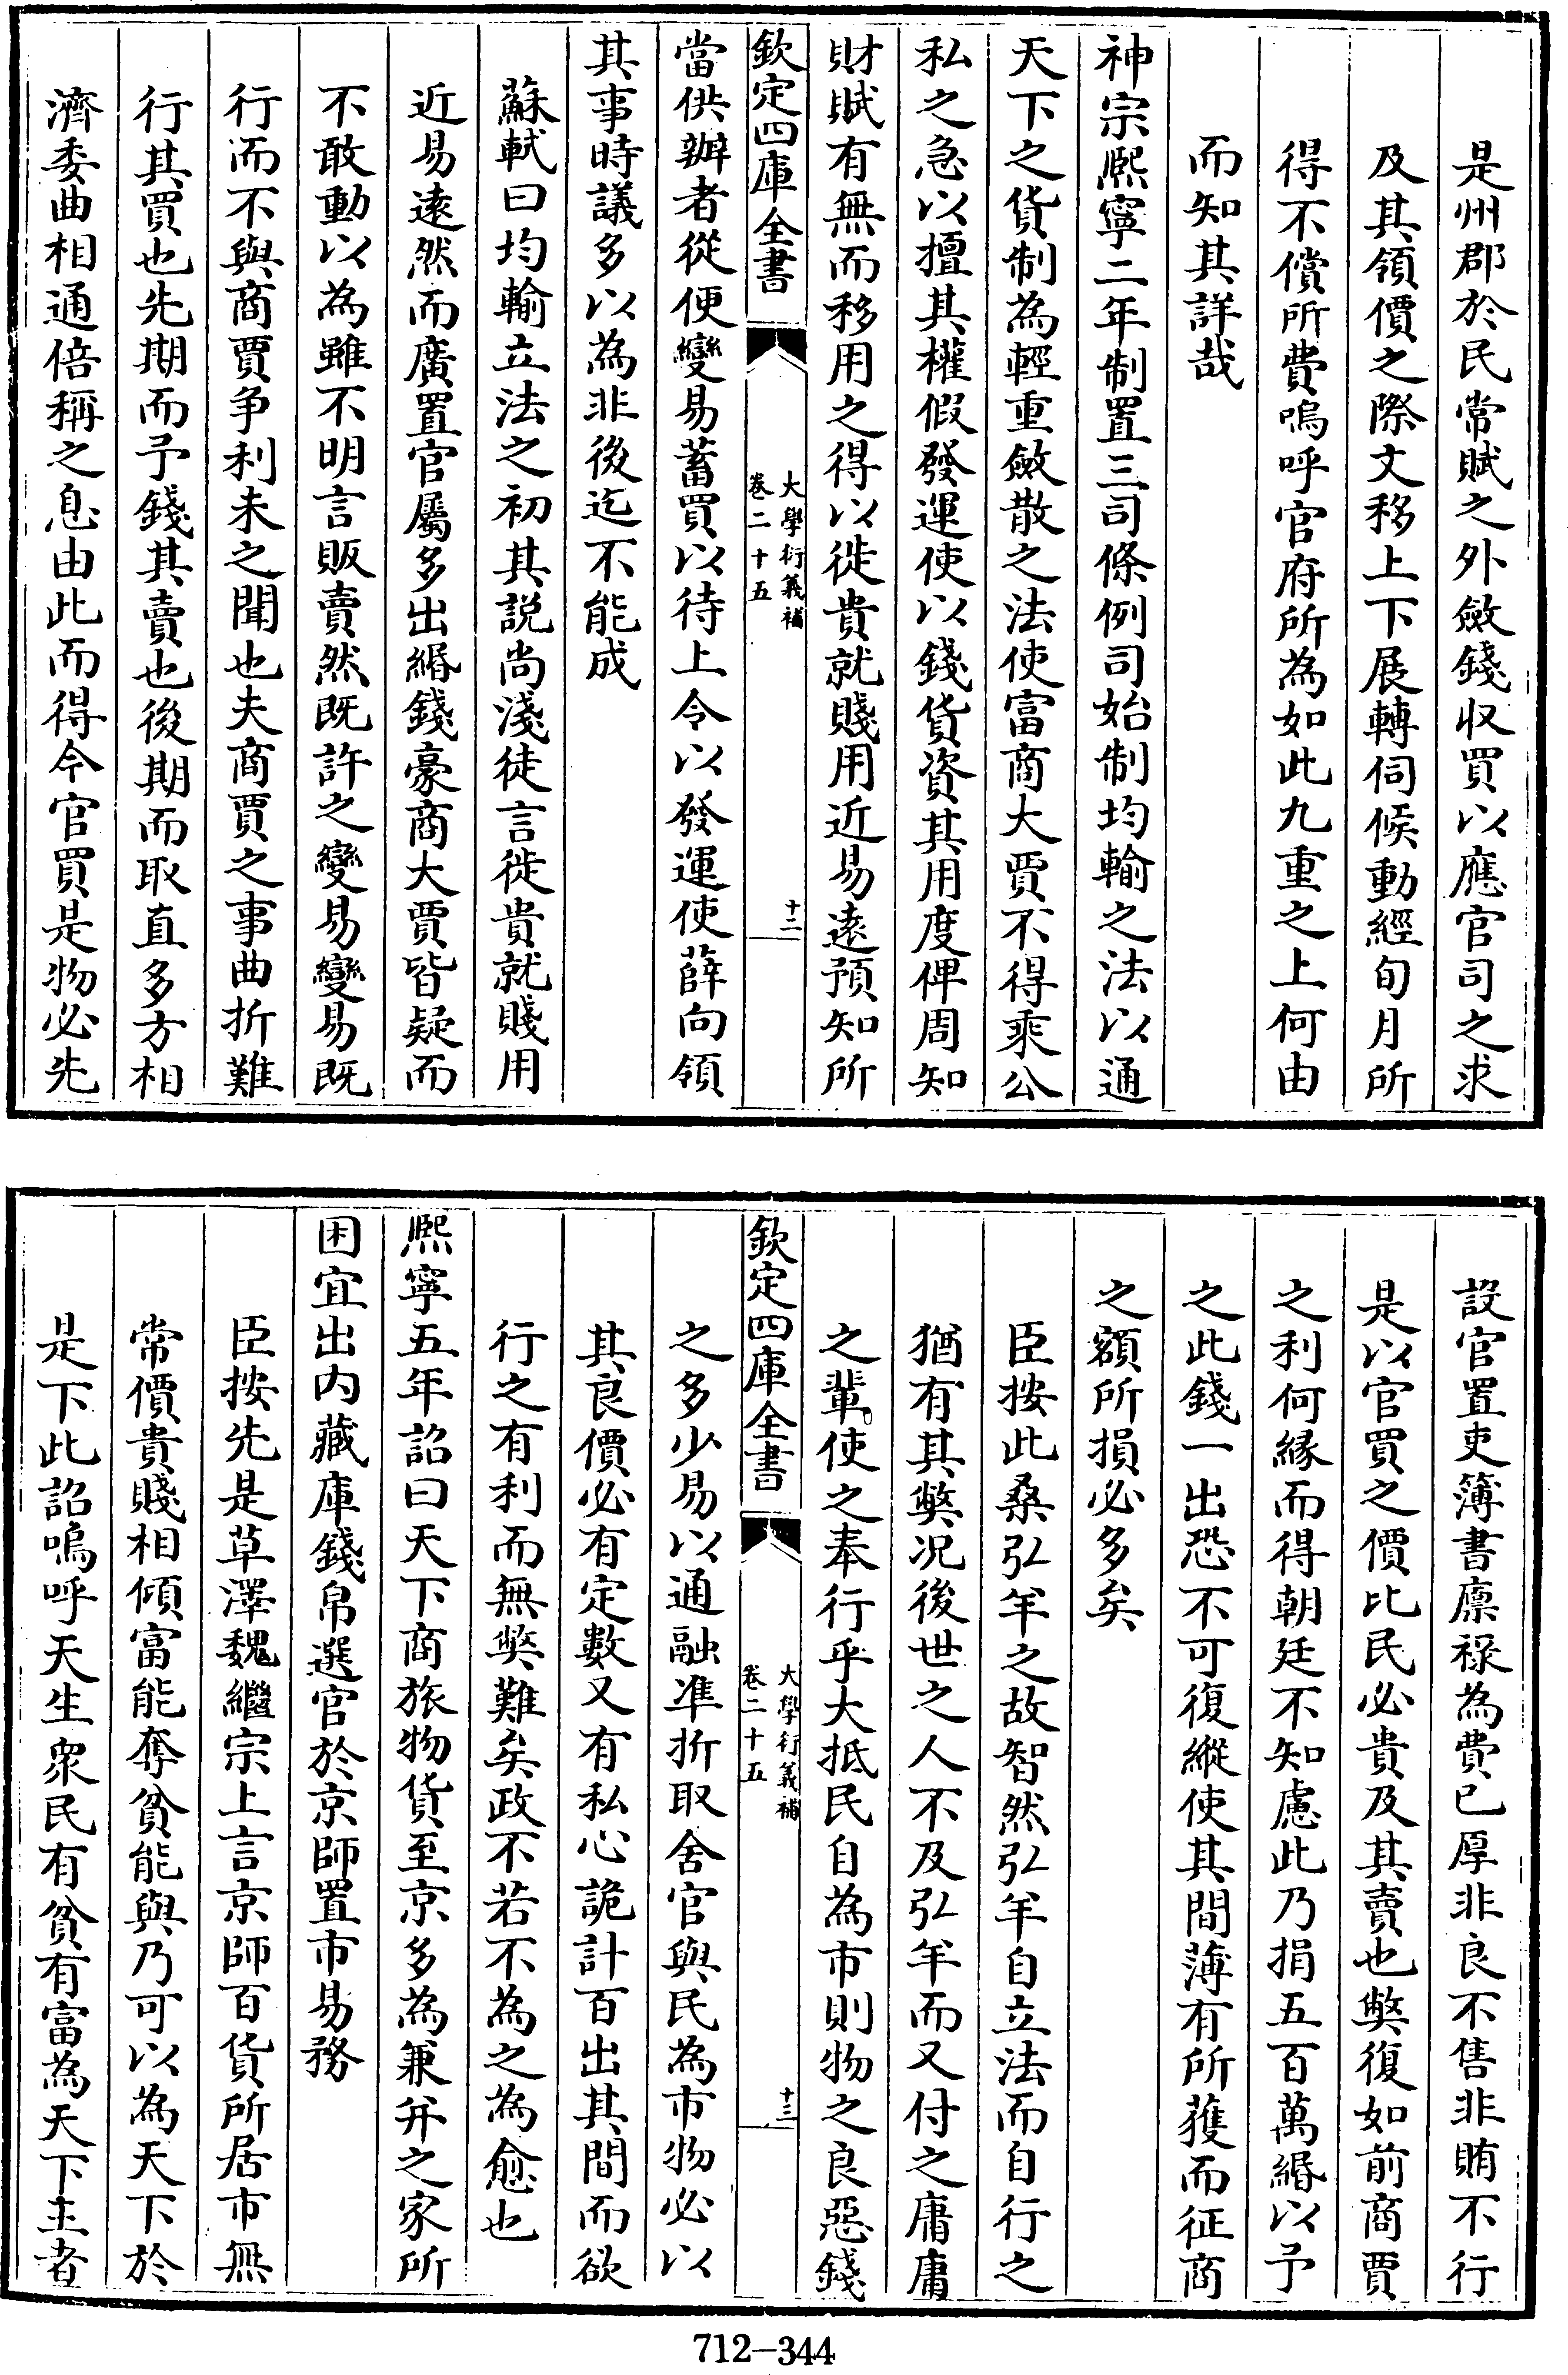 是州郡於民常賦之外斂錢収買以應官司之求
及其領價之際文移上下展轉伺候動經旬月所
得不償所費嗚呼官府所為如此九重之上何由
而知其詳哉
神宗熈寧二年制置三司條例司始制均輸之法以通
天下之貨制為輕重斂散之法使富商大賈不得乘公
私之急以擅其權假發運使以錢貨資其用度俾周知
財賦有無而移用之得以徙貴就賤用近易遠預知所
欽定四庫全書
大學衍義補
卷二十五
十二
當供辦者從便變易蓄買以待上令以發運使薛向領
其事時議多以為非後迄不能成
蘇軾曰均輸立法之初其説尚淺徒言徙貴就賤用
近易遠然而廣置官屬多出緡錢豪商大賈皆疑而
不敢動以為雖不明言販賣然既許之變易變易既
行而不與商賈争利未之聞也夫商賈之事曲折難
行其買也先期而予錢其賣也後期而取直多方相
濟委曲相通倍稱之息由此而得今官買是物必先
設官置吏簿書廪禄為費已厚非良不售非賄不行
是以官買之價比民必貴及其賣也弊復如前商賈
之利何緣而得朝廷不知慮此乃捐五百萬緡以予
之此錢一出恐不可復縱使其間薄有所獲而征商
之額所損必多矣
臣按此桑弘羊之故智然弘羊自立法而自行之
猶有其弊况後世之人不及弘羊而又付之庸庸
之輩使之奉行乎大抵民自為市則物之良惡錢
欽定四庫全書
大學衍義補
卷二十五
十三
之多少易以通融凖折取舍官與民為市物必以
其良價必有定數又有私心詭計百出其間而欲
行之有利而無弊難矣政不若不為之為愈也
熈寧五年詔曰天下商旅物貨至京多為兼并之家所
困宜出内藏庫錢帛選官於京師置市易務
臣按先是草澤魏繼宗上言京師百貨所居市無
常價貴賤相傾富能奪貧能與乃可以為天下於
是下此詔嗚呼天生衆民有貧有富為天下主者
712-344